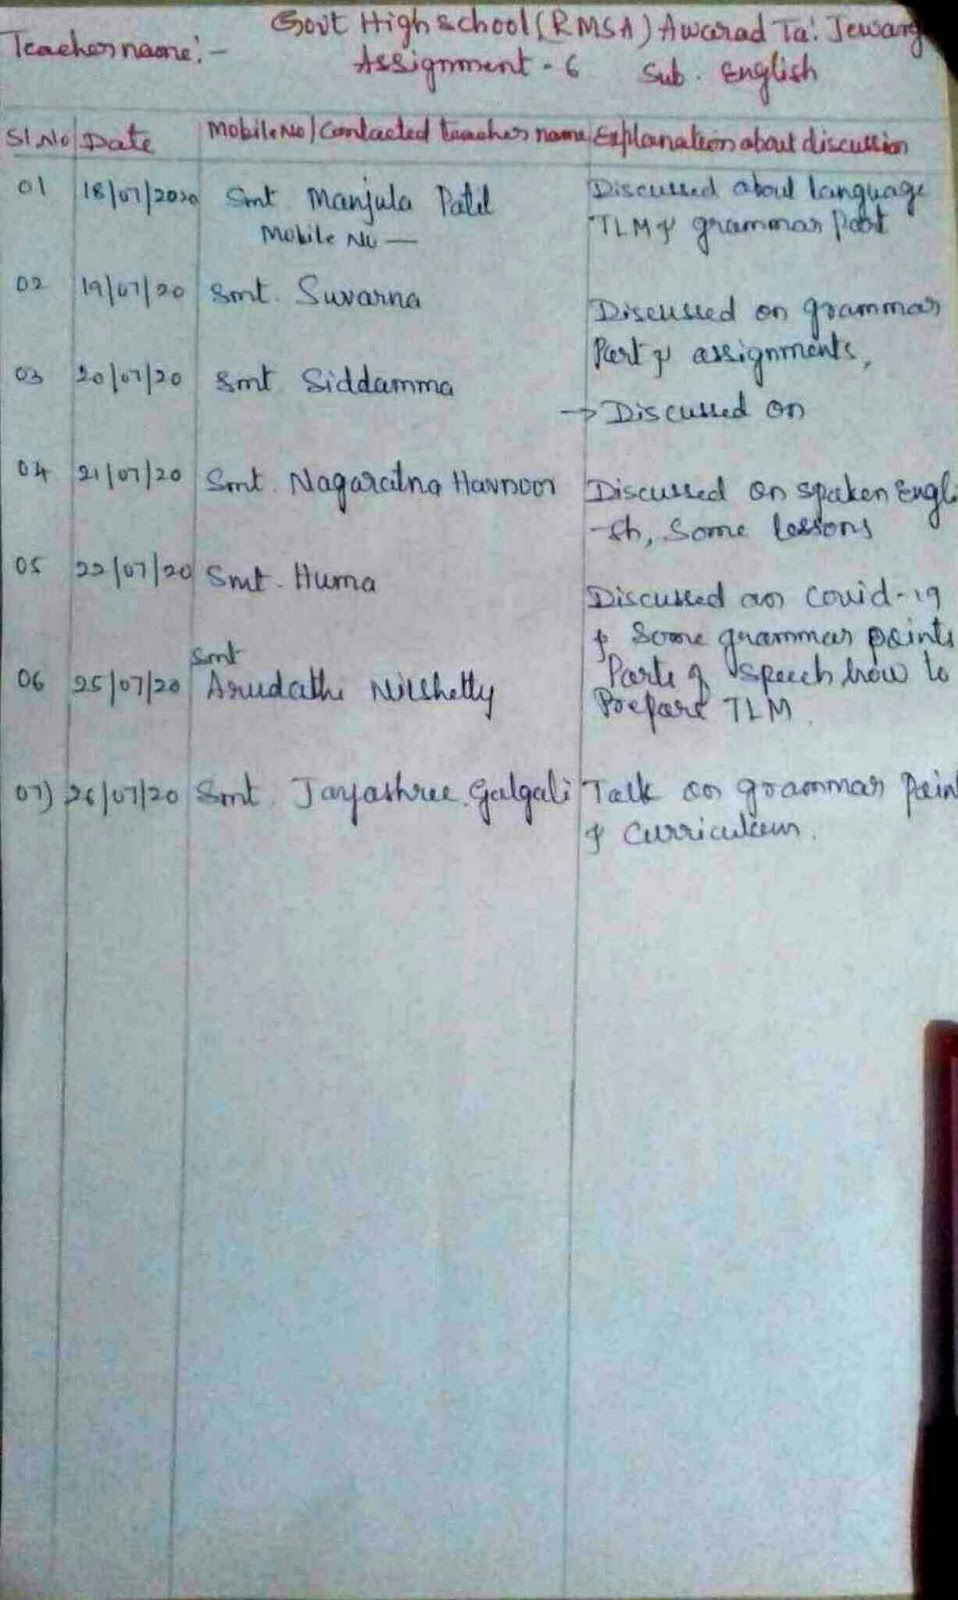 Govt High school (RMSA) Awarad Ta: Jewarg
Teacher name:-
Assignment - 6 Sub. English
Sl.No Date Mobile No/Contacted teacher name Explanation about discussion
01 18/07/2020 Smt Manjula Patil Discussed about language
Mobile No — TLM & grammar Part
02 19/07/20 Smt. Suvarna Discussed on grammar
Part & assignments,
03 20/07/20 Smt Siddamma
→ Discussed on
04 21/07/20 Smt. Nagaratna Havnoor Discussed on spoken Engl
-sh, Some lessons
05 22/07/20 Smt. Huma Discussed on Covid-19
& Some grammar points
Smt
06 25/07/20 Arudathi Nilshetty Parts of speech how to
Prepare TLM.
07) 26/07/20 Smt. Jayashree. Galgali Talk on grammar Poin
& Curriculum.